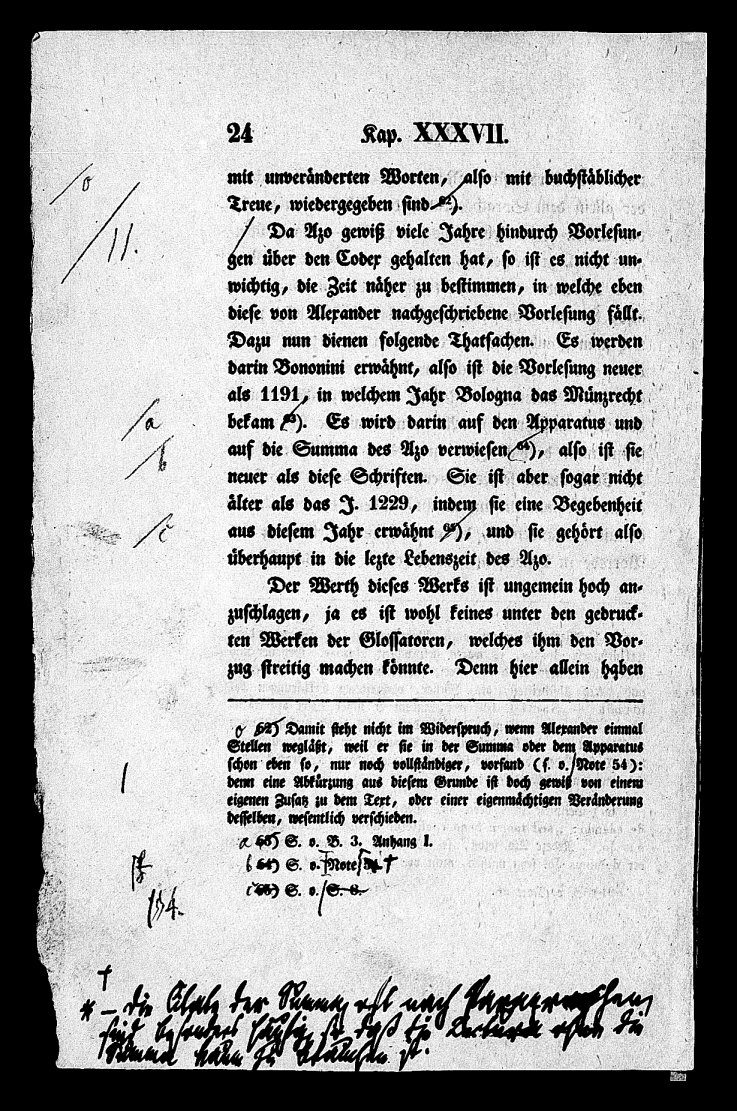 24 Kap. XXXVII.
mit unveränderten Worten, also mit buchstäblicher
Treue, wiedergegeben sind 62).
Da Azo gewiß viele Jahre hindurch Vorlesun-
gen über den Codex gehalten hat, so ist es nicht un-
wichtig, die Zeit näher zu bestimmen, in welche eben
diese von Alexander nachgeschriebene Vorlesung fällt.
Dazu nun dienen folgende Thatsachen. Es werden
darin Bononini erwähnt, also ist die Vorlesung neuer
als 1191, in welchem Jahr Bologna das Münzrecht
bekam 63). Es wird darin auf den Apparatus und
auf die Summa des Azo verwiesen 64), also ist sie
neuer als diese Schriften. Sie ist aber sogar nicht
älter als das J. 1229, indem sie eine Begebenheit
aus diesem Jahr erwähnt 65), und sie gehört also
überhaupt in die lezte Lebenszeit des Azo.
Der Werth dieses Werks ist ungemein hoch an-
zuschlagen, ja es ist wohl keines unter den gedruck-
ten Werken der Glossatoren, welches ihm den Vor-
zug streitig machen könnte. Denn hier allein haben
62) Damit steht nicht im Widerspruch, wenn Alexander einmal
Stellen wegläßt, weil er sie in der Summa oder dem Apparatus
schon eben so, nur noch vollständiger, vorfand (s. o. Note 54):
denn eine Abkürzung aus diesem Grunde ist doch gewiß von einem
eigenen Zusatz zu dem Text, oder einer eigenmächtigen Veränderung
desselben, wesentlich verschieden.
a 63) S. o. B. 3. Anhang I.
b 64) S. o. Note 54 †
c 65) S. o. S. 8.
o
11.
a
b
c
†
die der Summa nach
sind besonders häufig, so daß die Lectura ohne die
Summa kaum zu ist.